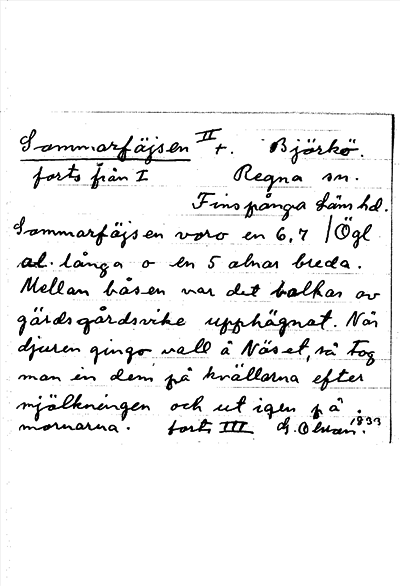 Sommarfäjsen II +. Björkö.
forts från I Regna sn.
Finspånga läns hd.
Sommarfäjsen voro en 6, 7 /Ögl
al. långa o en 5 alnar breda.
Mellan båsen var det balkar av
gärdsgårdsvike upphägnat. När
djuren gingo vall å Näset, så tog
man in dem på kvällarna efter
mjälkningen och ut igen på
mornarna. forts III G. Olsson. 1933